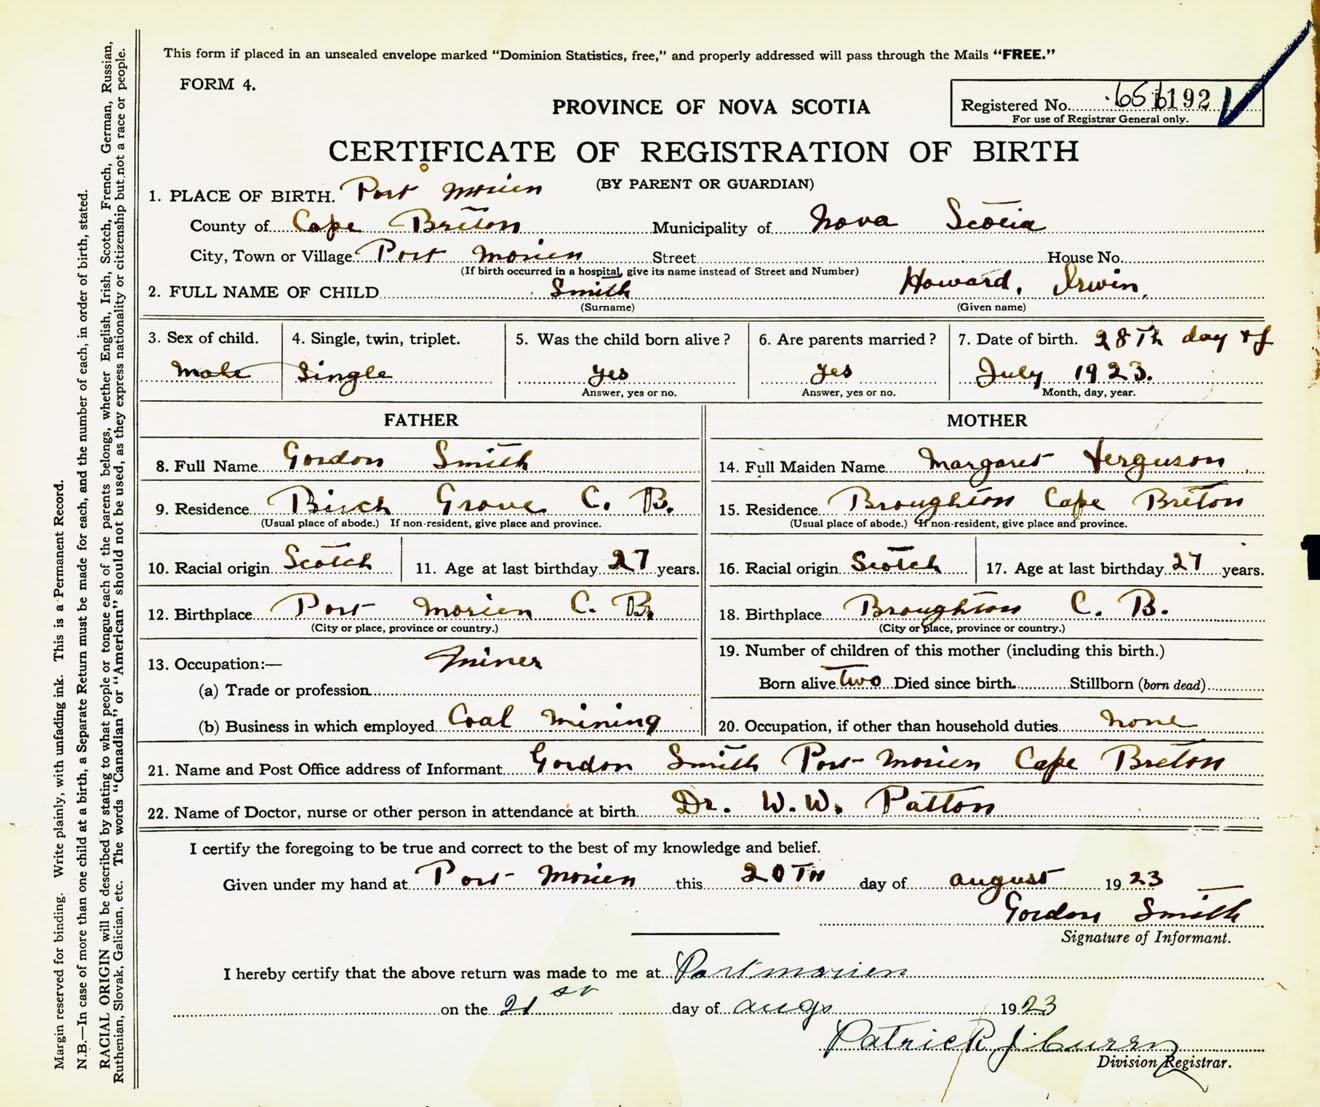 This form if placed in an unsealed envelope marked "Dominion Statistics, free," and properly addressed will pass through the Mails "FREE."
FORM 4.
PROVINCE OF NOVA SCOTIA
Registered No. 192
For use of Registrar General only.
CERTIFICATE OF REGISTRATION OF BIRTH
(BY PARENT OR GUARDIAN)
1. PLACE OF BIRTH. Port Morien
County of Cape Breton Municipality of Nova Scotia
City, Town or Village Port Morien Street House No.
(If birth occurred in a hospital, give its name instead of Street and Number)
2. FULL NAME OF CHILD Smith Howard, Irwin,
(Surname) (Given name)
3. Sex of child. 4. Single, twin, triplet. 5. Was the child born alive? 6. Are parents married? 7. Date of birth. 28Th day of
Male Single yes yes July 1923.
Answer, yes or no. Answer, yes or no. Month, day, year.
FATHER MOTHER
8. Full Name Gordon Smith 14. Full Maiden Name Margaret Ferguson
9. Residence Birch Grove C. B. 15. Residence Broughton Cape Breton
(Usual place of abode.) If non-resident, give place and province. (Usual place of abode.) If non-resident, give place and province.
10. Racial origin Scotch 11. Age at last birthday 27 years. 16. Racial origin Scotch 17. Age at last birthday 27 years.
12. Birthplace Port Morien C. B. 18. Birthplace Broughton C. B.
(City or place, province or country.) (City or place, province or country.)
13. Occupation:— Miner 19. Number of children of this mother (including this birth.)
(a) Trade or profession Born alive Two Died since birth Stillborn (born dead)
(b) Business in which employed Coal Mining 20. Occupation, if other than household duties None
21. Name and Post Office address of Informant Gordon Smith Port Morien Cape Breton
22. Name of Doctor, nurse or other person in attendance at birth Dr. W. W. Patton
I certify the foregoing to be true and correct to the best of my knowledge and belief.
Given under my hand at Port Morien this 20Th day of august 1923
Gordon Smith
Signature of Informant.
I hereby certify that the above return was made to me at Port morien
on the 21st day of augs 1923
Patrick J Curry
Division Registrar.
Margin reserved for binding. Write plainly, with unfading ink. This is a Permanent Record.
N.B.—In case of more than one child at a birth, a Separate Return must be made for each, and the number of each, in order of birth, stated.
RACIAL ORIGIN will be described by stating to what people or tongue each of the parents belongs, whether English, Irish, Scotch, French, German, Russian,
Ruthenian, Slovak, Galician, etc. The words "Canadian" or "American" should not be used, as they express nationality or citizenship but not a race or people.